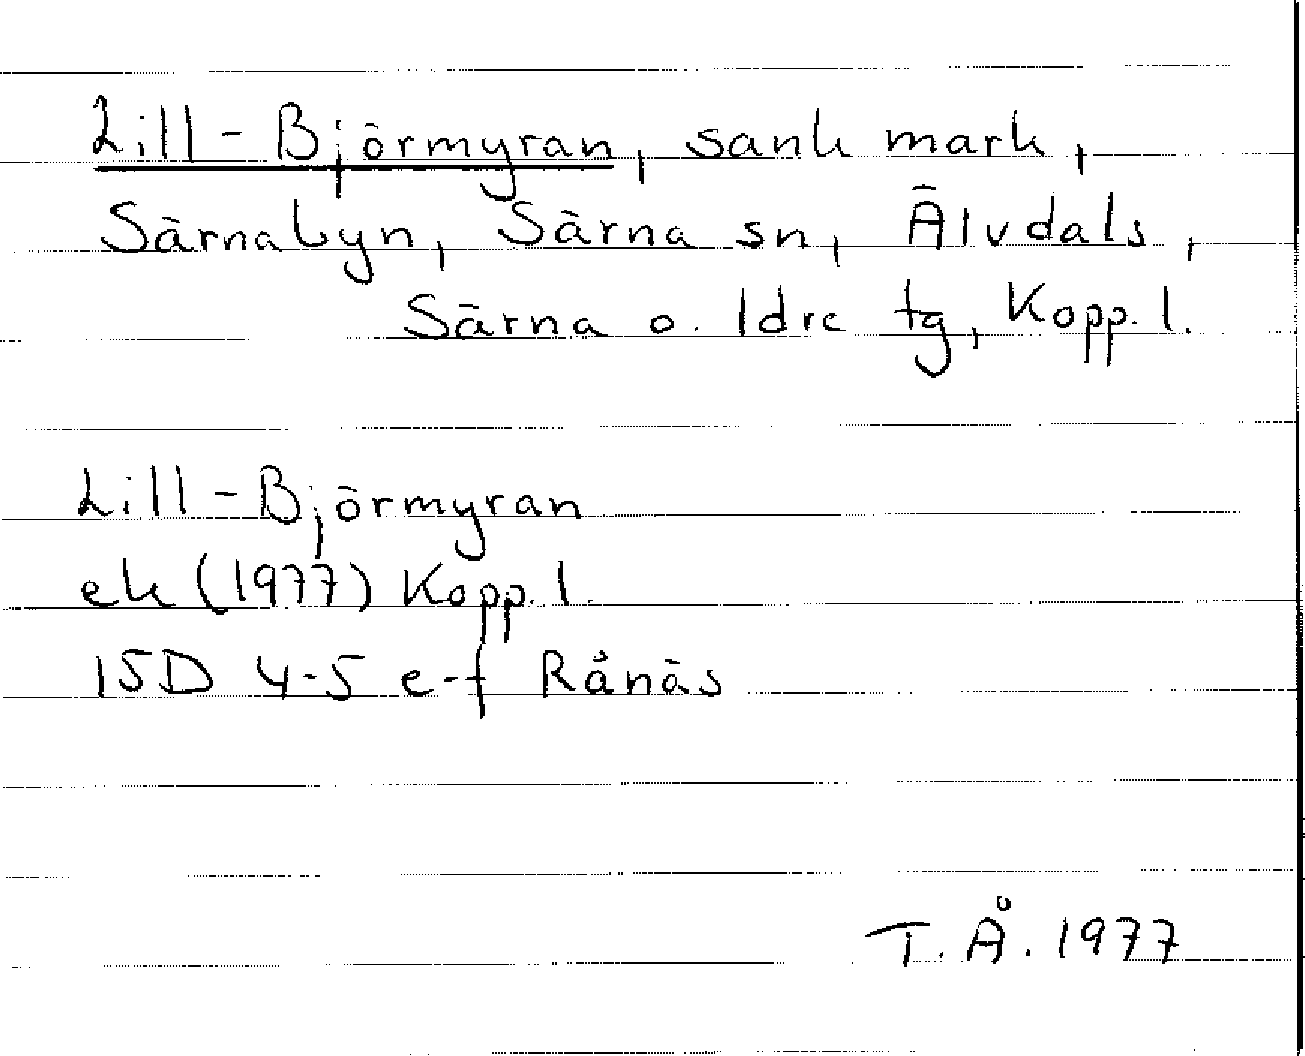 Lill-Björmyran, sank mark,
Särnabyn, Särna sn, Älvdals,
Särna o. Idre tg, Kopp. l.
Lill-Björmyran
ek (1977) Kopp. l.
15D 4-5 e-f Rånäs
T.Å. 1977